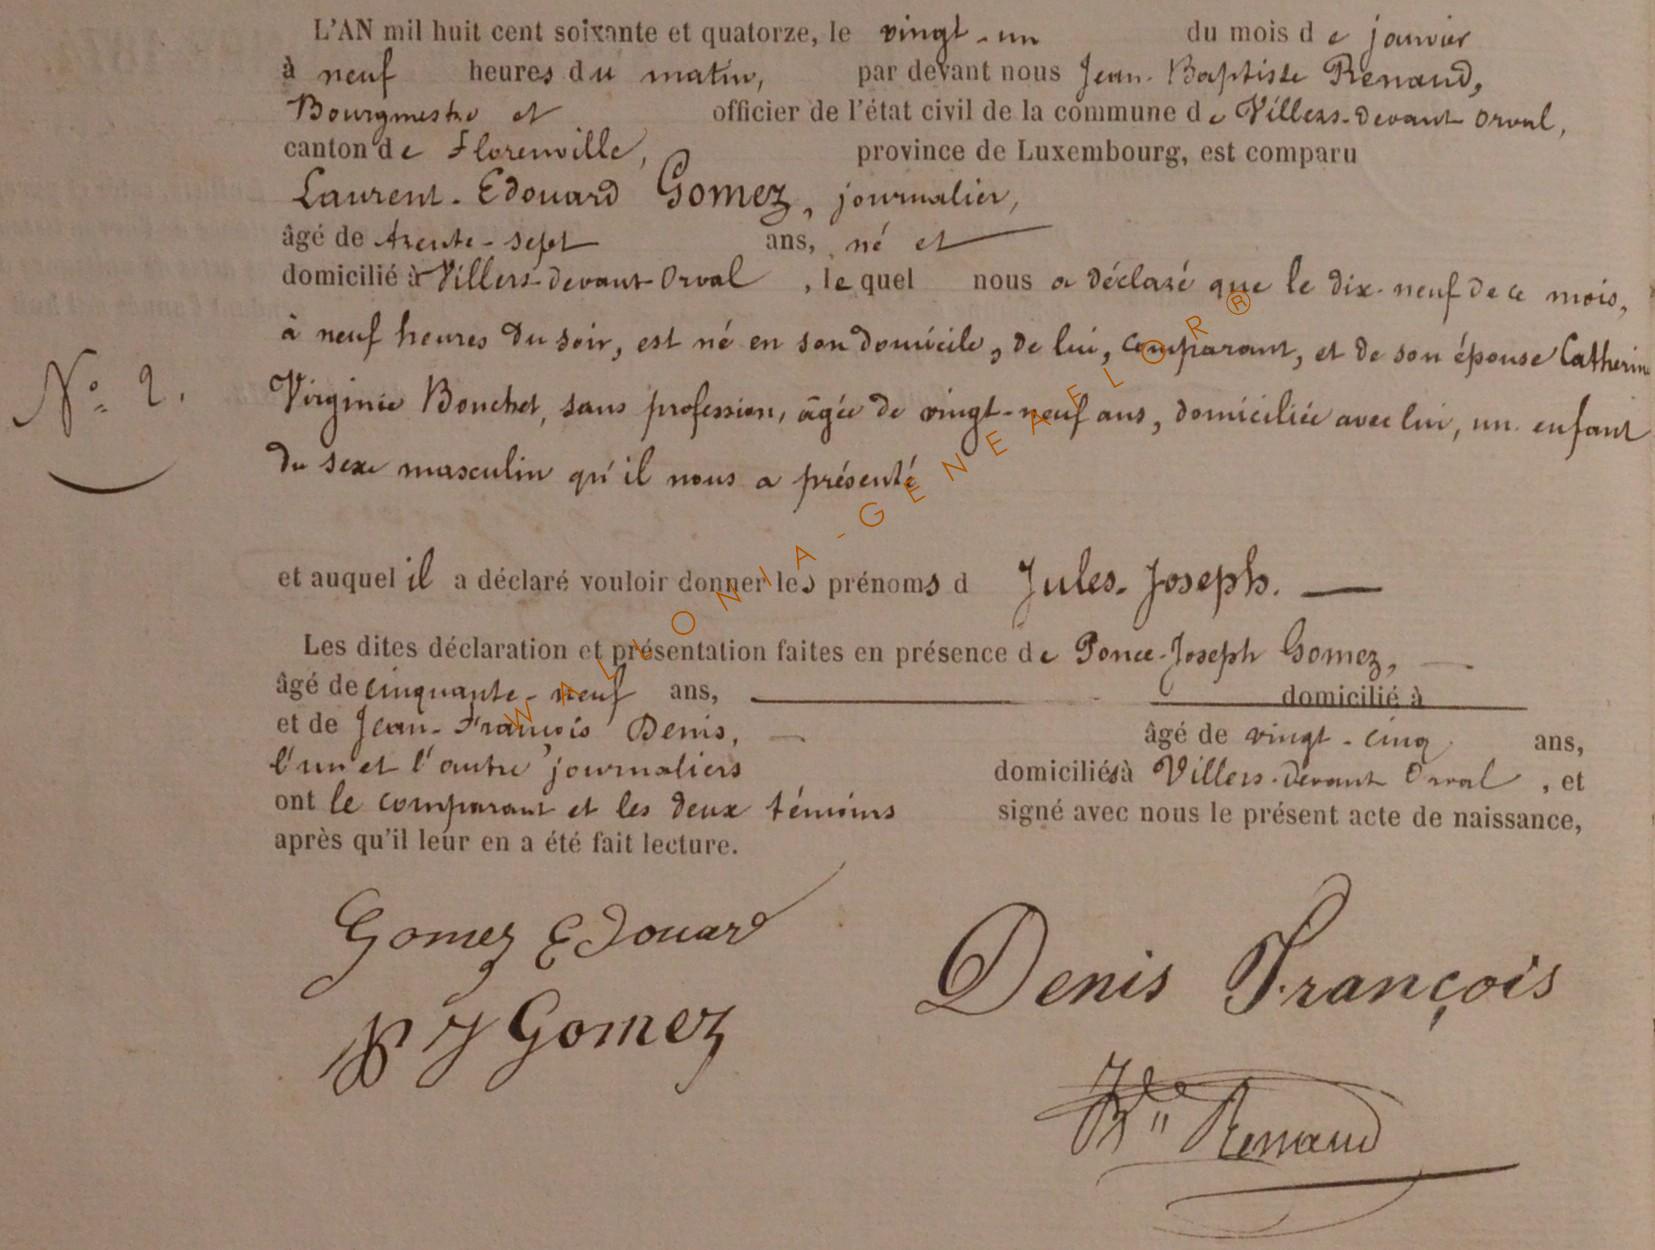 L'AN mil huit cent soixante et quatorze, le vingt-un du mois de janvier
à neuf heures du matin, par devant nous Jean-Baptiste Renaud,
Bourgmestre et officier de l'état civil de la commune de Villers-devant Orval,
canton de Florenville, province de Luxembourg, est comparu
Laurent-Edouard Gomez, journalier,
âgé de trente-sept ans, né et
domicilié à Villers-devant-Orval, lequel nous a déclaré que le dix-neuf de ce mois,
à neuf heures du soir, est né en son domicile, de lui, comparant, et de son épouse Catherine
N° 2.
Virginie Bouchet, sans profession, âgée de vingt-neuf ans, domiciliée avec lui, un enfant
du sexe masculin qu'il nous a présenté
et auquel il a déclaré vouloir donner les prénoms d Jules-Joseph.
Les dites déclaration et présentation faites en présence de Ponce-Joseph Gomez,
âgé de cinquante-neuf ans, domicilié à
et de Jean-François Denis, âgé de vingt-cinq ans,
l'un et l'autre journaliers domiciliés à Villers-devant Orval, et
ont le comparant et les deux témoins signé avec nous le présent acte de naissance,
après qu'il leur en a été fait lecture.
Gomez Edouard
Denis François
P J Gomez
Renaud
WALLONIA-GENEAFLOR®